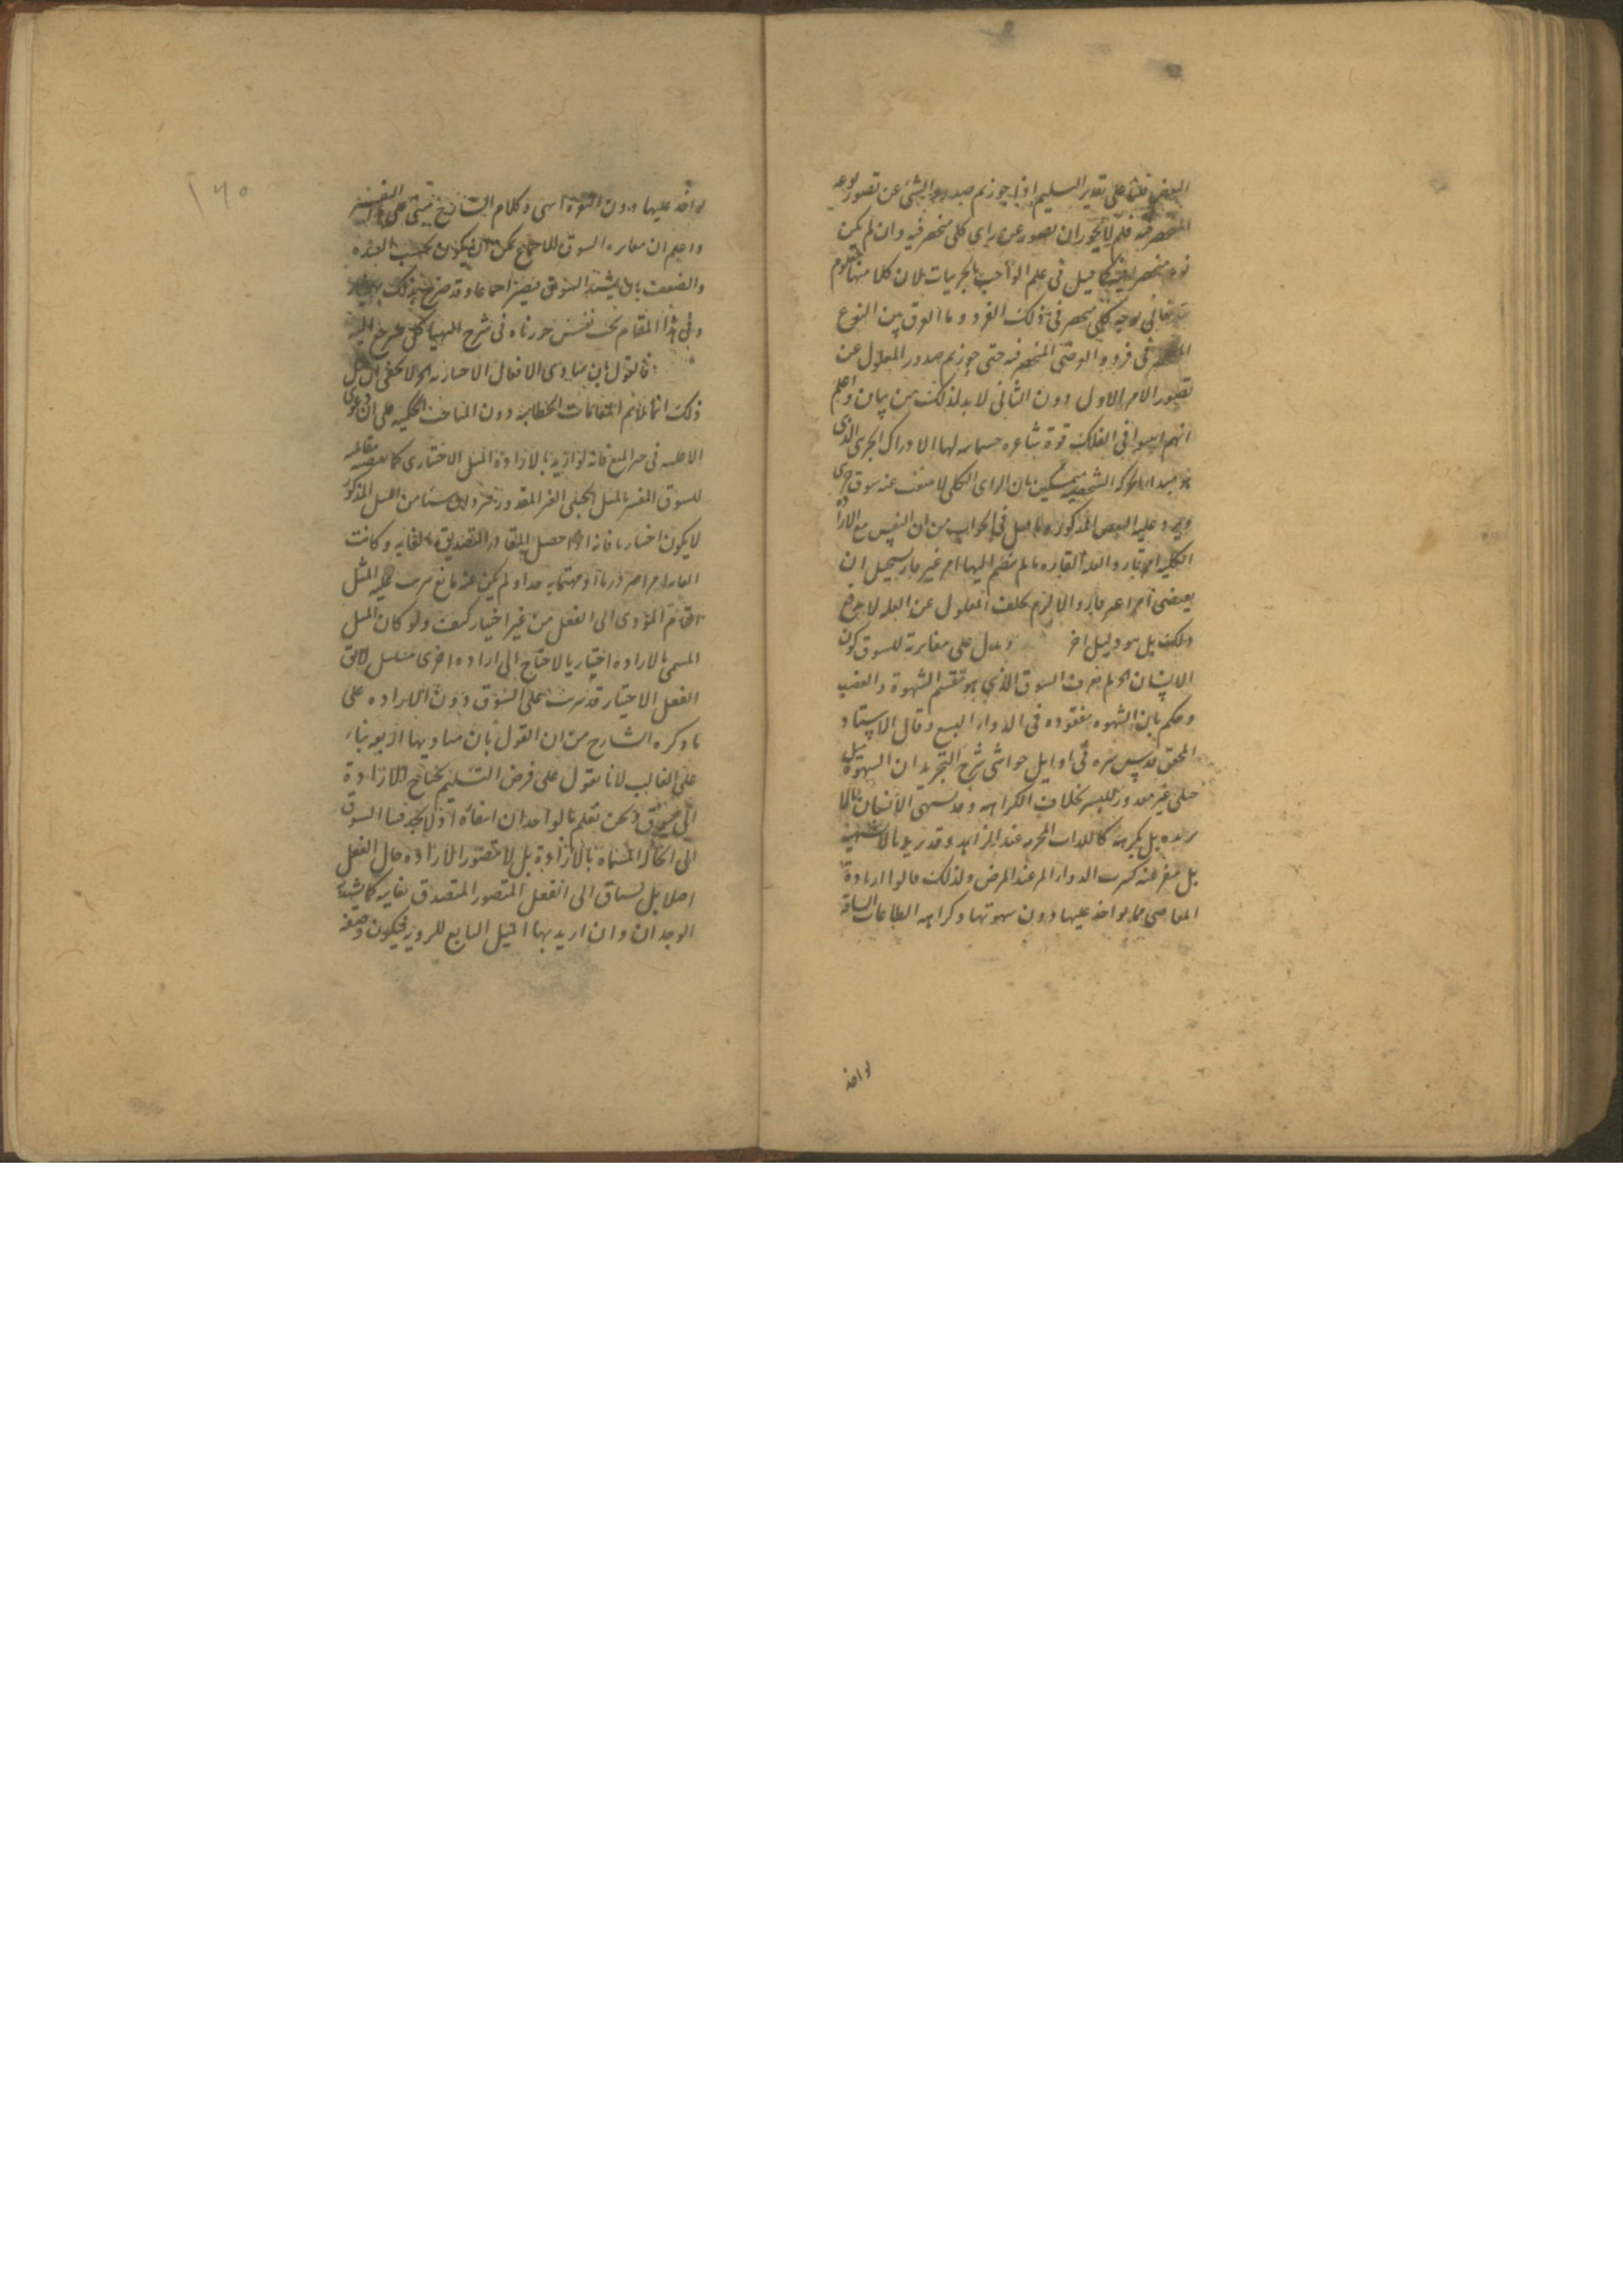 البعض قلنا على تقدير التسليم اذا جوزتم صدور الشئ عن تصور نوعه
المنحصر فيه فلم لا يجوز ان يصدر عن راى كلى منحصر فيه وان لم يكن
نوعه منحصرا فيه كما قيل فى علم الواجب بالجزييات لان كلا منها معلوم
له تعالى بوجه كلى منحصر فى ذلك الفرد وما الفرق بين النوع
المنحصر فى فرد والعرضى المنحصر فيه حتى جوزتم صدور المعلول عن
تصور الامر الاول دون الثانى لا بد لذلك من بيان واعلم
انهم اثبتوا فى الفلك قوة شاعره جسمانيه لها الادراك الجزئى الذى
هو مبدا الحركه الشخصيه متمسكين بان الراى الكلى لا ينبعث عنه شوق جزئى
ويرد عليه البعض المذكور وما قيل فى الجواب من ان النفس مع الارادة
الكليه امر قار والعلة القاره ما لم ينضم اليها امر غير قار يستحيل ان
يقتضى امرا غير قار والا لزم تخلف المعلول عن العله لا يدفع
ذلك بل هو دليل اخر ويدل على مغايرة للشوق كون
الانسان الخ لم يعرف الشوق الذى هو تقسم الشهوة والغضب
وحكم بان الشهوه مفقوده فى الدواء البشع وقال الاستاد
المحقق قدس سره فى اوايل حواشى شرح التجريد ان الشهوة ميل
جبلى غير مقدور للبشر بخلاف الكراهه وقد يشتهى الانسان ما لا
يريده بل يكرهه كاللذات المحرمه عند الزاهد وقد يريد ما لا يشتهيه
بل ينفر عنه كشرب الدواء المر عند المرض ولذلك قالوا ارادة
المعاصى مما يواخذ عليها دون شهوتها وكراهه الطاعات الشاقة
يواخذ
١٦٥
يواخذ عليها دون النفرة انتهى وكلام الشارح مبنى على هذا التفسير
واعلم ان مغايره الشوق للاجماع يمكن ان يكون بحسب الشده
والضعف بان يشتد الشوق فيصير اجماعا وقد صرح بذلك بهمنيار
وفى هذا المقام بحث نفيس حررناه فى شرح الهياكل فليرجع اليه
قال نقول ان مبادى الافعال الاختياريه الخ لا يخفى ان مثل
ذلك انما يلائم المقامات الخطابيه دون المباحث الحكميه على ان دعوى
الاغلبيه فى حيز المنع فانه لو اريد بالارادة الميل الاختيارى كما يقتضيه مقابلته
للشوق المفسر بالميل الجبلى الغير المقدور فنرد ان شيئا من الميل المذكور
لا يكون اختياريا فانه اذا حصل التصور والتصديق بالغايه وكانت
الغايه امرا ضروريا او مهتما به جدا ولم يكن عنه مانع ترتب عليه الميل
التام المؤدى الى الفعل من غير اختيار كيف ولو كان الميل
المسمى بالاراده اختياريا لاحتاج الى اراده اخرى فيتسلسل لا يق
الفعل الاختيار قد يترتب على الشوق دون الاراده على
ما ذكره الشارح من ان القول بان مباديها اربع بناء
على الغالب لانا نقول على فرض التسليم يحتاج الارادة
الى شوق ونحن نعلم بالوجدان انتفاءه اذ لا نجد فينا الشوق
الى الحالة المسماه بالارادة بل لا نتصور الارادة حال الفعل
اصلا بل نساق الى الفعل المتصور المتصدق بغايته كما يشهد به
الوجدان وان اريد بها الميل التابع للرويه فيكون وصفه